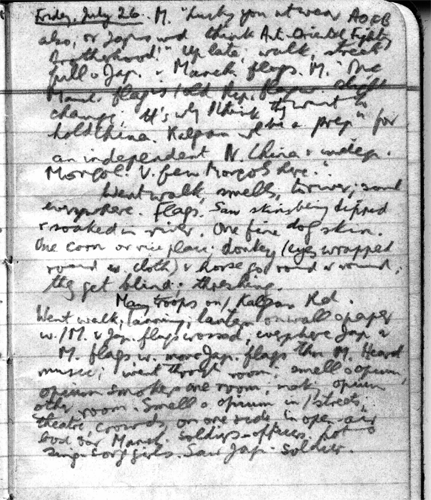 Friday, July 26. M. "Lucky you not wear AOFB
also, or Japs wd think Anti-Oriental Fighting
Brotherhood!" Up late, walk, streets
full o Jap. & Manch. flags. M. "The
Manch. flag is old Rep. flag
change, It's why I think they want to
hold China. Kalgan wl be a prep" for
an independent N. China & indep.
Mongol. V. few Mongols here."
Went walk, smells, sand
everywhere. Flags. Saw skins being dipped
& soaked in river. One fine dog skin.
One corn or rice place: donkey (eyes wrapped
round w. cloth) & horse go round & round,
they get blind: threshing.
Many troops on / Kalgan Rd.
Went walk, lantern on wall o paper
w. / M. & Jap. flags crossed, everywhere Jap. &
M. flags w. more Jap. flags than M. Heard
music, went through room: smell o opium,
opium smokers one room, opium
other room. Smell o opium in / streets.
theatre, crowds on one side in open air
Manch. soldiers & officers,
sing-song girls. Saw Jap. soldier.